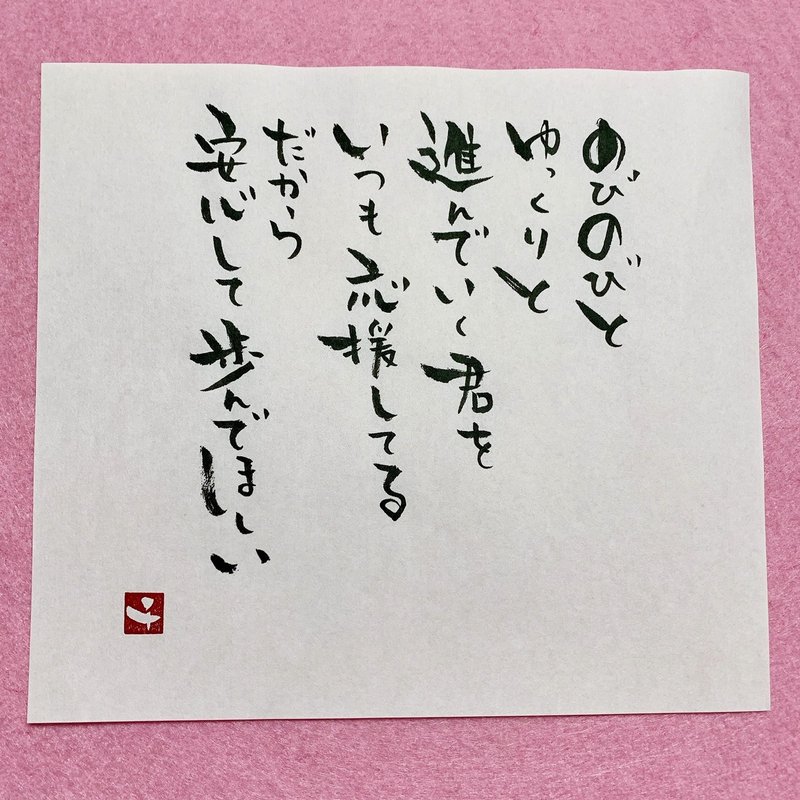 のびのびと
ゆっくりと
進んでいく君を
いつも応援してる
だから
安心して歩んでほしい
千